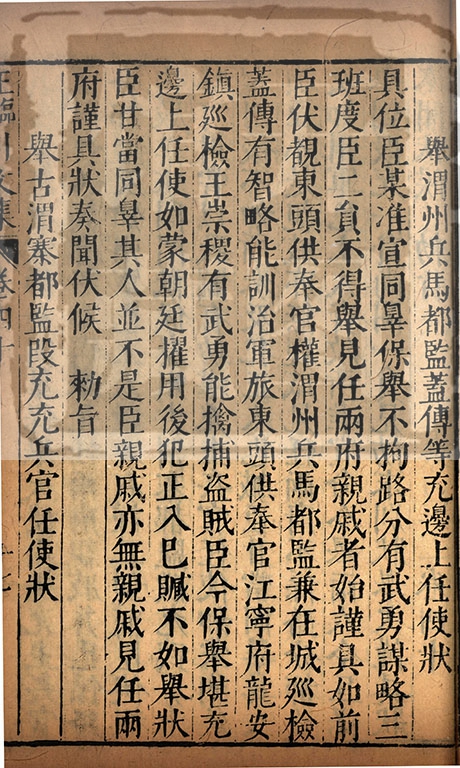 舉渭州兵馬都監蓋傳等充邊上任使狀
具位臣某准宣同辠保舉不拘路分有武勇謀略三
班度臣二負不得舉見任兩府親戚者始謹具如前
臣伏覩東頭供奉官權渭州兵馬都監兼在城廵檢
蓋傳有智略能訓治軍旅東頭供奉官江寧府龍安
鎮廵檢王崇稷有武勇能擒捕盜賊臣今保舉堪充
邊上任使如蒙朝廷擢用後犯正入巳贓不如舉狀
臣甘當同辠其人並不是臣親戚亦無親戚見任兩
府謹具狀奏聞伏候　勑旨
舉古渭寨都監段充充兵官任使狀
王臨川文集　卷四十